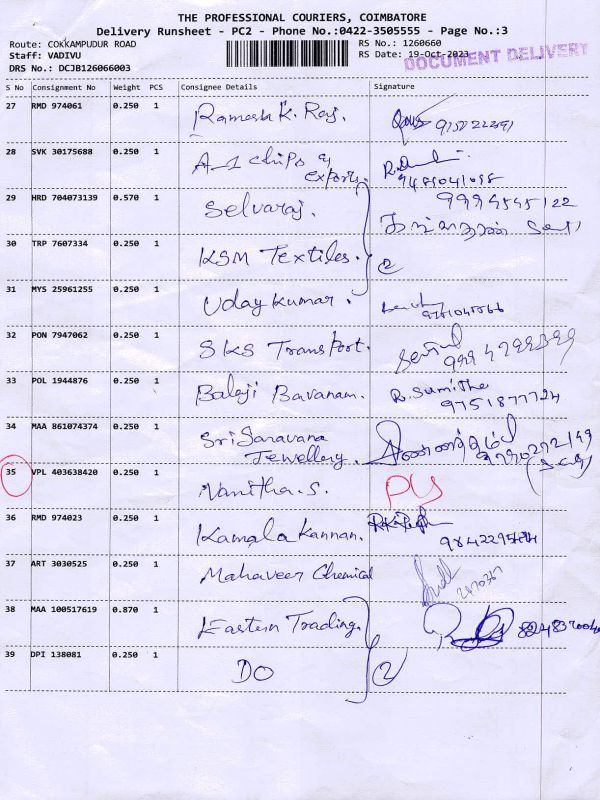 THE PROFESSIONAL COURIERS, COIMBATORE
Delivery Runsheet - PC2 - Phone No.:0422-3505555 - Page No.:3
Route: COKKAMPUDUR ROAD RS No.: 1260660
Staff: VADIVU RS Date: 19-Oct-2023
DOCUMENT DELIVERY
DRS No.: DCJB126066003
S No Consignment No Weight PCS Consignee Details Signature
27 RMD 974061 0.250 1 Ramesh K. Raj.
28 SVK 30175688 0.250 1 A-1 chips &
exports.
29 HRD 704073139 0.570 1 Selvaraj. 9994545122
30 TRP 7607334 0.250 1 KSM Textiles. 2
31 MYS 25961255 0.250 1 Uday Kumar.
32 PON 7947062 0.250 1 SKS Transport.
33 POL 1944876 0.250 1 Balaji Bavanam. R. Sumithe
9751877724
34 MAA 861074374 0.250 1 Sri Saravana
Jewellery.
35 VPL 403638420 0.250 1 Vanitha.S.
36 RMD 974023 0.250 1 Kamala Kannan.
37 ART 3030525 0.250 1 Mahaveer Chemical
38 MAA 100517619 0.870 1 Eastern Trading.
39 DPI 138081 0.250 1 DO 2